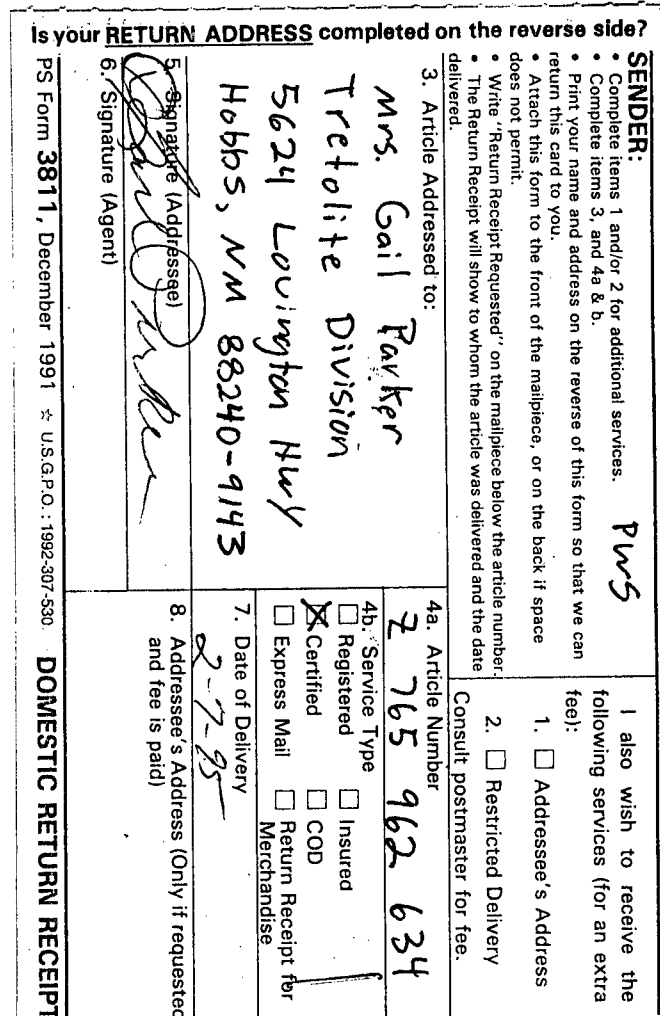 Is your RETURN ADDRESS completed on the reverse side?
SENDER:
• Complete items 1 and/or 2 for additional services.
• Complete items 3, and 4a & b.
• Print your name and address on the reverse of this form so that we can
return this card to you.
• Attach this form to the front of the mailpiece, or on the back if space
does not permit.
• Write "Return Receipt Requested" on the mailpiece below the article number.
• The Return Receipt will show to whom the article was delivered and the date
delivered.
PWS
I also wish to receive the
following services (for an extra
fee):
1. ☐ Addressee's Address
2. ☐ Restricted Delivery
Consult postmaster for fee.
3. Article Addressed to:
Mrs. Gail Parker
Tretolite Division
5624 Lovington Hwy
Hobbs, NM 88240-9143
4a. Article Number
Z 765 962 634
4b. Service Type
☐ Registered ☐ Insured
☒ Certified ☐ COD
☐ Express Mail ☐ Return Receipt for
Merchandise
7. Date of Delivery
2-7-95
5. Signature (Addressee)
8. Addressee's Address (Only if requested
and fee is paid)
6. Signature (Agent)
PS Form 3811, December 1991 ☆ U.S.G.P.O.: 1992-307-530
DOMESTIC RETURN RECEIPT